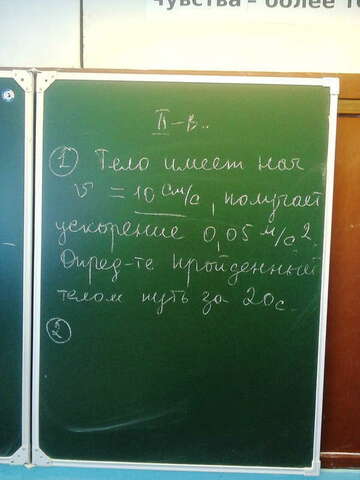 чувства – более то
II-в..
① Тело имеет нач
v = 10 см/с, получает
ускорение 0,05 м/с2.
Опред-те пройденный
телом путь за 20с.
②